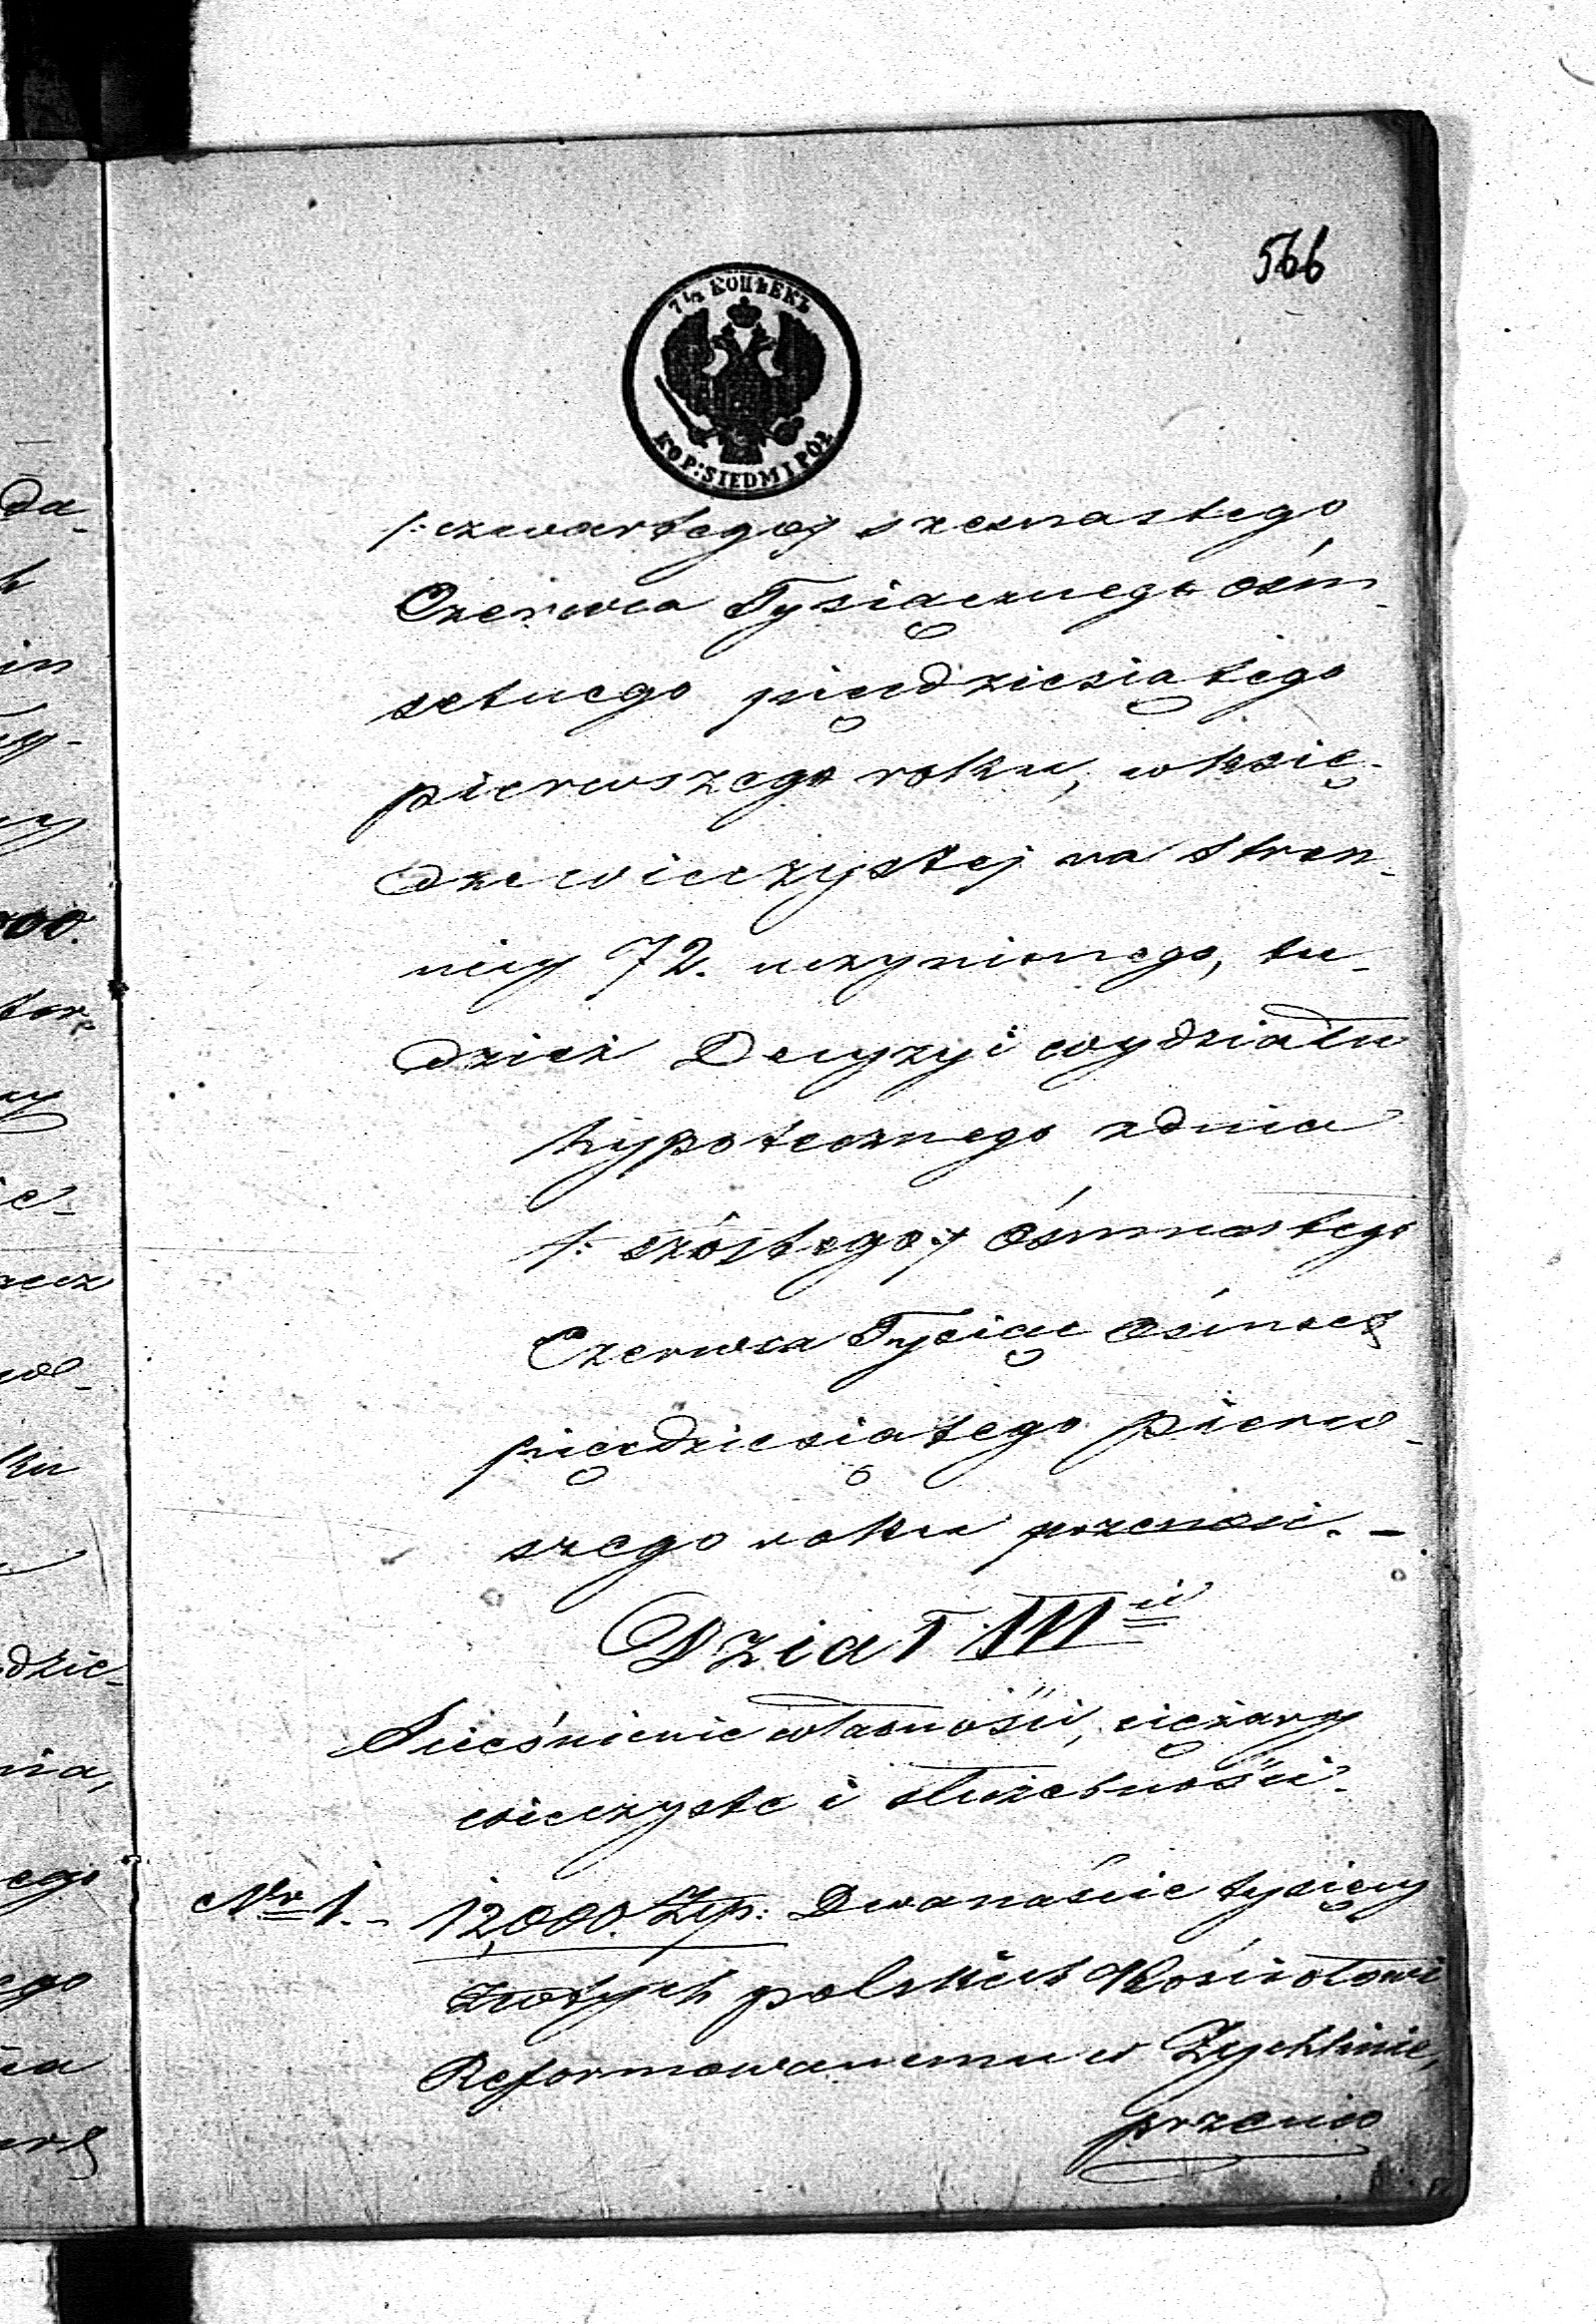 566
7½ КОПѢЕКЪ
KOP: SIEDM I PÓŁ
/: czwartego :/ szesnastego
Czerwca Tysiącznego óśm-
setnego pięćdziesiątego
pierwszego roku, w księ-
dze wieczystej na stron-
nicy 72. uczynionego, tu-
dzież Decyzyi wydziału
hypotecznego z dnia
/: szóstego :/ ósmnastego
Czerwca Tysiąc ósmset
pięćdziesiątego pierw-
szego roku
Dział III ci
Ścieśnienie własności, ciężary
wieczyste i służebności.
Nr 1.- 12,000. Złp: Dwanaście tysięcy
złotych polskich Kościołowi
Reformowanemu w Żychlinie,